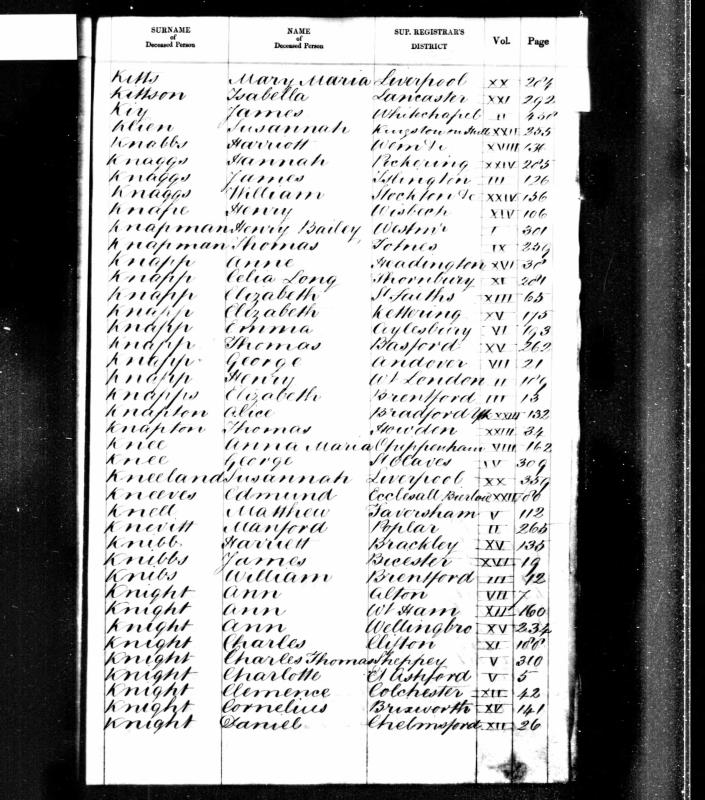 SURNAME of Deceased Person NAME of Deceased Person SUP. REGISTRAR'S DISTRICT Vol. Page
Kitts Mary Maria Liverpool XX 204
Kittson Isabella Lancaster XXI 292
Kiy James Whitechapel II
Klien Susannah Kingston on Hull XXII 255
Knabbs Harriott Wem &c XVIII 136
Knaggs Hannah Pickering XXIV 205
Knaggs James Islington III 126
Knaggs William Stockton &c XXIV 156
Knape Henry Wisbech XIV 106
Knapman Henry Bailey Westmr I 301
Knapman Thomas Totnes IX 259
Knapp Anne Headington XVI
Knapp Celia Long Thornbury XI 204
Knapp Elizabeth St Faiths XIII 65
Knapp Elizabeth Kettering XV 175
Knapp Emma Aylesbury VI 193
Knapp Thomas Basford XV 262
Knapp George Andover VII 21
Knapp Henry Wt London II 109
Knapps Elizabeth Brentford III 13
Knapton Alice Bradford Yk XXIII 132
Knapton Thomas Howden XXIII 34
Knee Anna Maria Chippenham VIII 162
Knee George St Olaves IV 309
Kneeland Susannah Liverpool XX 359
Kneeves Edmund Ecclesall Burloe XXII 80
Knell Matthew Faversham V 112
Knevitt Manford Poplar II 265
Knibb Harriett Brackley XV 135
Knibbs James Bicester XVI 19
Knibs William Brentford III 42
Knight Ann Alton VII 7
Knight Ann Wt Ham XII 160
Knight Ann Wellingbro XV 234
Knight Charles Clifton XI 108
Knight Charles Thomas Sheppey V 310
Knight Charlotte Et Ashford V 5
Knight Clemence Colchester XII 42
Knight Cornelius Brixworth XV 141
Knight Daniel Chelmsford XII 26